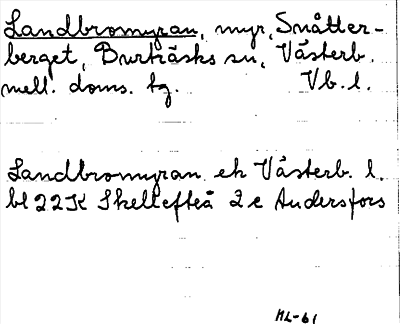 Landbromyran, myr, Snåtter-
berget, Burträsks sn, Västerb.
mell. doms. tg. Vb. l.
Landbromyran ek Västerb. l.
bl 22K Skellefteå 2 e Andersfors
ML-61